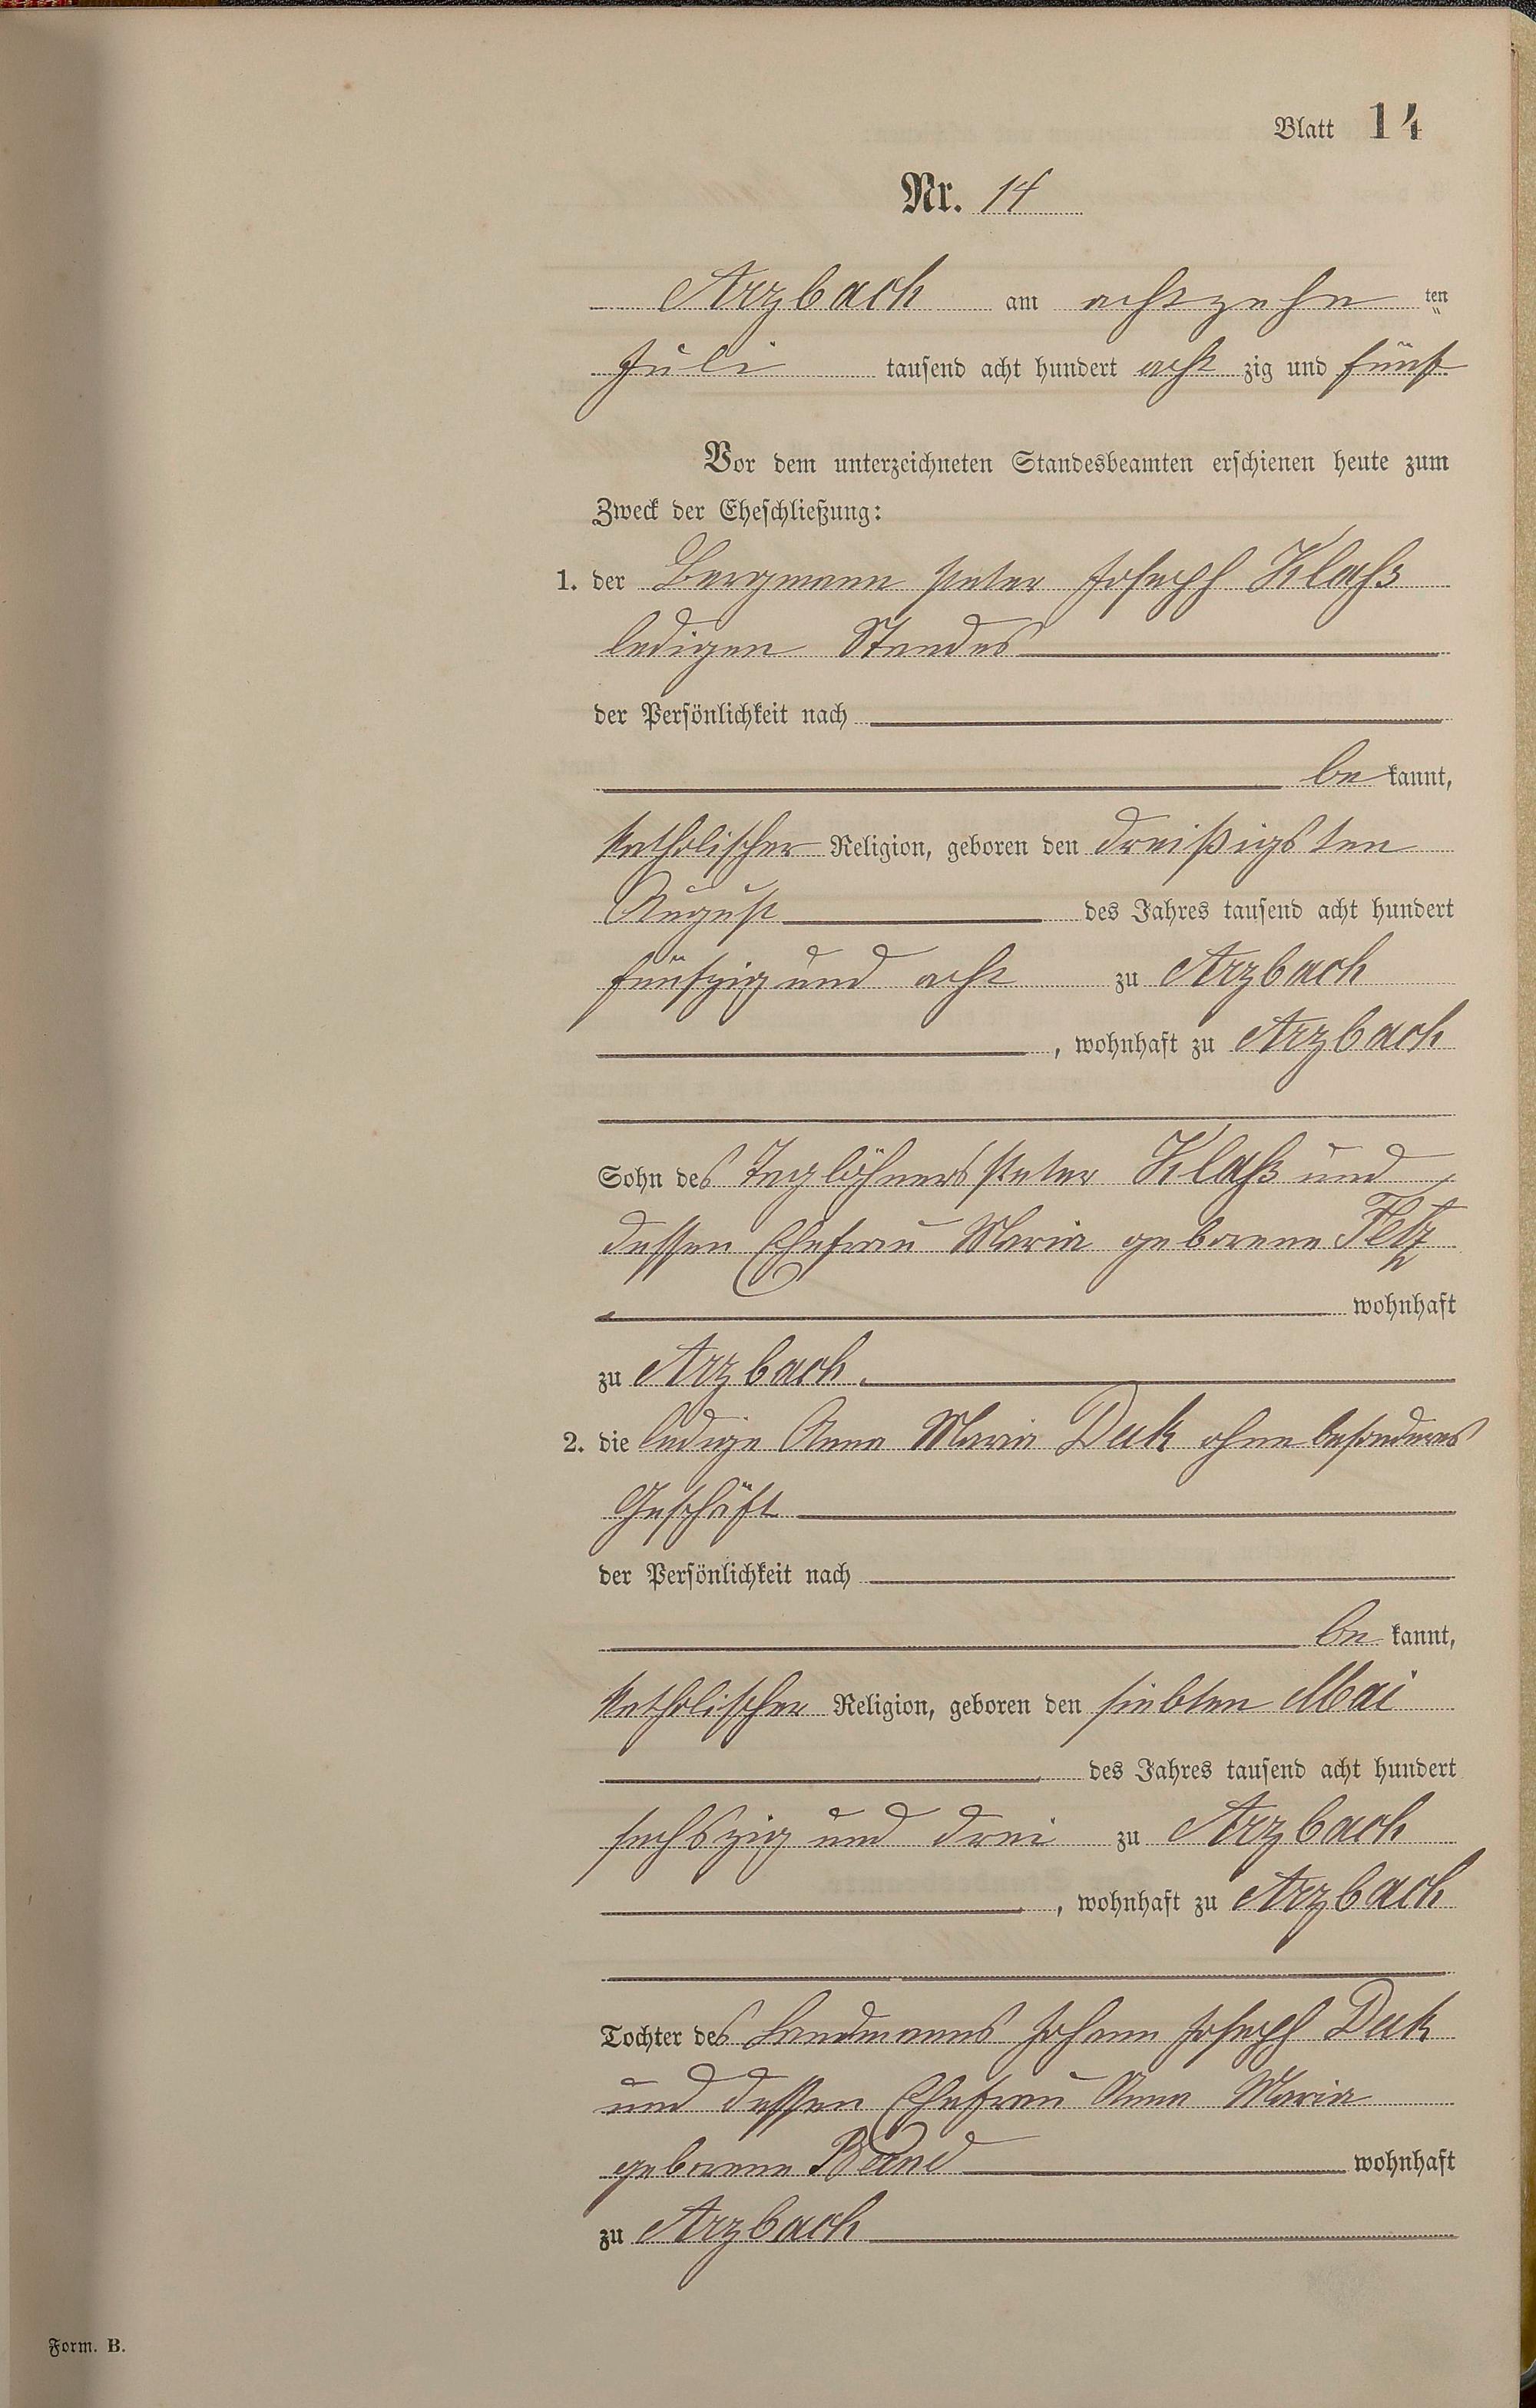 Blatt 14
Nr. 14
Arzbach am achtzehn ten
Juli tausend acht hundert acht zig und fünf
Vor dem unterzeichneten Standesbeamten erschienen heute zum
Zweck der Eheschließung:
1. der Bergmann Peter Joseph Klahs
ledigen Standes
der Persönlichkeit nach
be kannt,
katholischer Religion, geboren den dreißigsten
August des Jahres tausend acht hundert
fünfzig und acht zu Arzbach
, wohnhaft zu Arzbach
Sohn des Taglöhners Peter Klahs und
dessen Ehefrau Maria geborene
wohnhaft
zu Arzbach.
2. die ledige Anna Maria Duk ohne besonderes
Geschäft
der Persönlichkeit nach
be kannt,
katholischer Religion, geboren den siebten Mai
des Jahres tausend acht hundert
sechszig und drei zu Arzbach
, wohnhaft zu Arzbach
Tochter des Landmanns Johann Joseph Duk
und dessen Ehefrau Anna Maria
geborene Band wohnhaft
zu Arzbach
Form. B.